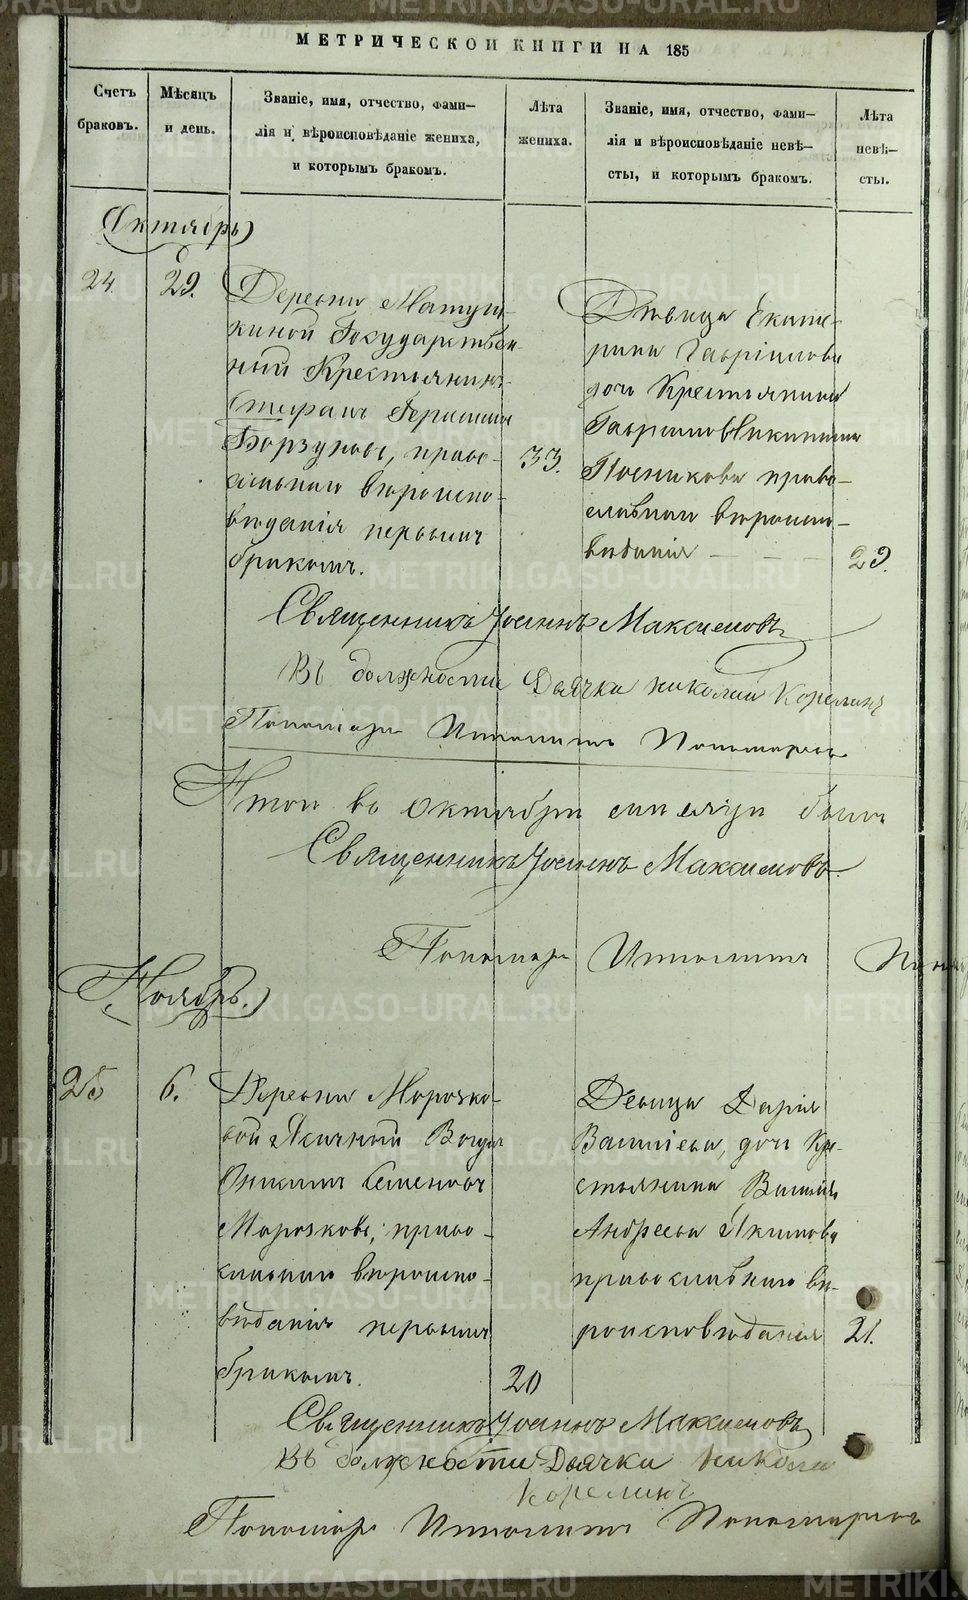 МЕТРИЧЕСКОЙ КНИГИ НА 185
Счетъ браковъ.
Мѣсяцъ и день.
Званіе, имя, отчество, фами–
лія и вѣроисповѣданіе жениха,
и которымъ бракомъ.
Лѣта
жениха.
Званіе, имя, отчество, фами–
лія и вѣроисповѣданіе невѣ–
сты, и которымъ бракомъ.
Лѣта
невѣ–
сты.
Октябрь
24.
29.
Деревни Матуш-
киной Государствен-
ный Крестьянинъ
Стефанъ Герасимовъ
Борзуновъ, право-
славнаго вѣроиспо-
вѣданія первымъ
бракомъ.
33.
Дѣвица Екате-
рина Гавріилова
дочь Крестьянина
Гавріила Никитина
Постникова право-
славнаго вѣроиспо-
вѣданія — — —
29.
Священникъ Іоаннъ Максимовъ
Въ должности Дьячка Николай Корелинъ
Пономарь Ипполитъ Пономаревъ
Итого въ Октябрѣ мѣсяцѣ было
Священникъ Іоаннъ Максимовъ
Пономарь Ипполитъ
Ноябрь.
25
6.
Деревни Морозко-
вой Ясачный Вогулъ
Семеновъ
Морозковъ, право-
славнаго вѣроиспо-
вѣданія первымъ
бракомъ.
20
Девица Дарія
Васильева, дочь Кре-
стьянина Василія
Андреева Якимова
православнаго вѣ-
роисповѣданія
21.
Священникъ Іоаннъ Максимовъ
Въ должности Дьячка Николай
Корелинъ
Пономарь Ипполитъ Пономаревъ
METRIKI.GASO-URAL.RU